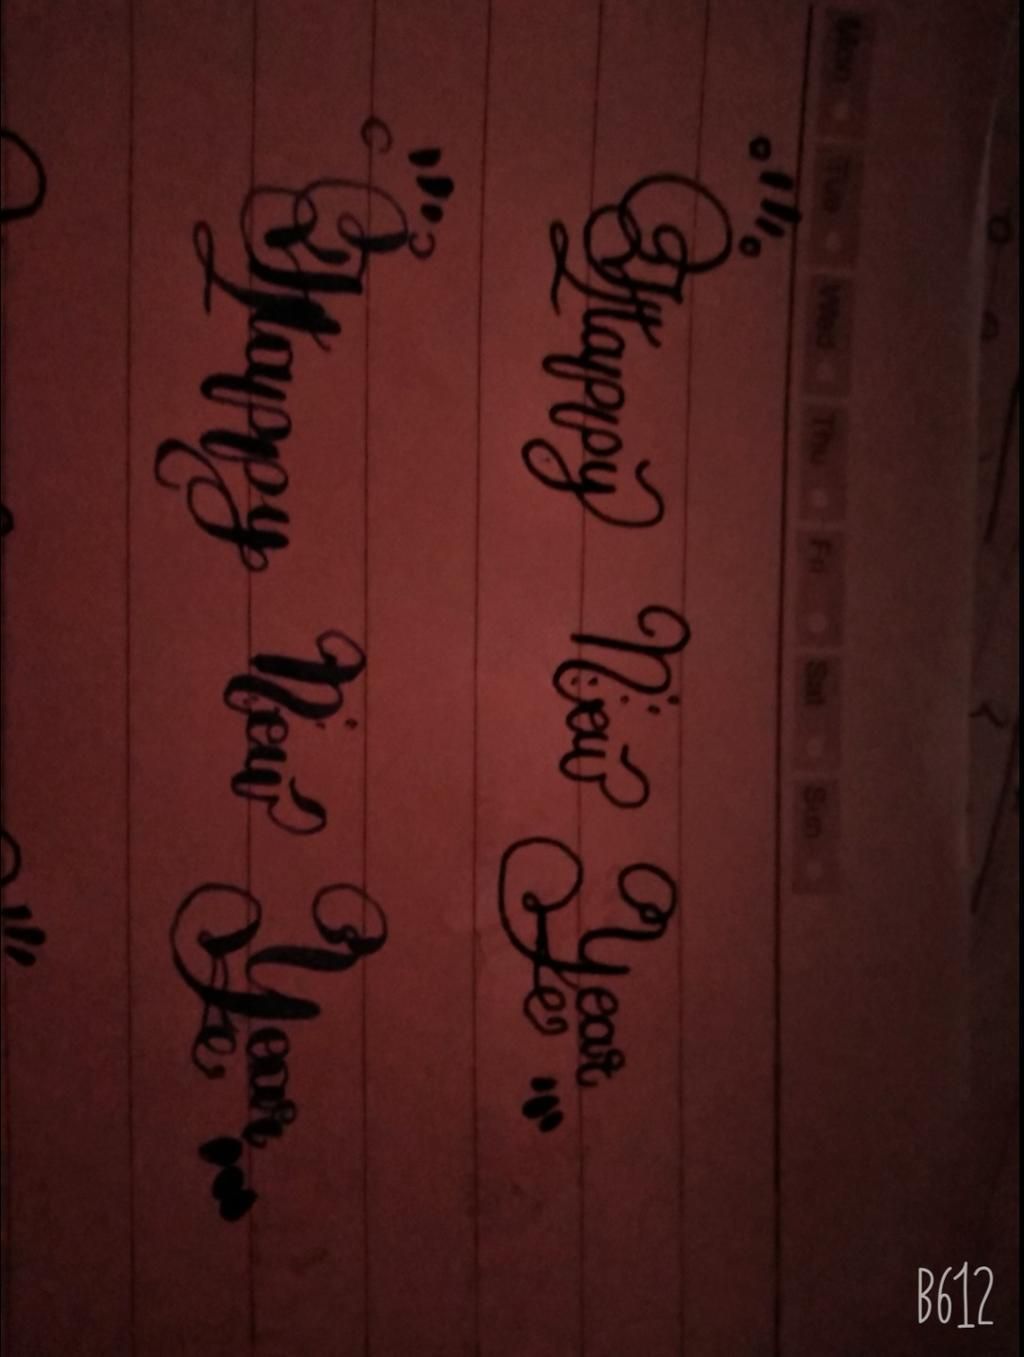 Mon Tue Wed Thu Fri Sat Sun
Happy New Year
Happy New Year
B612